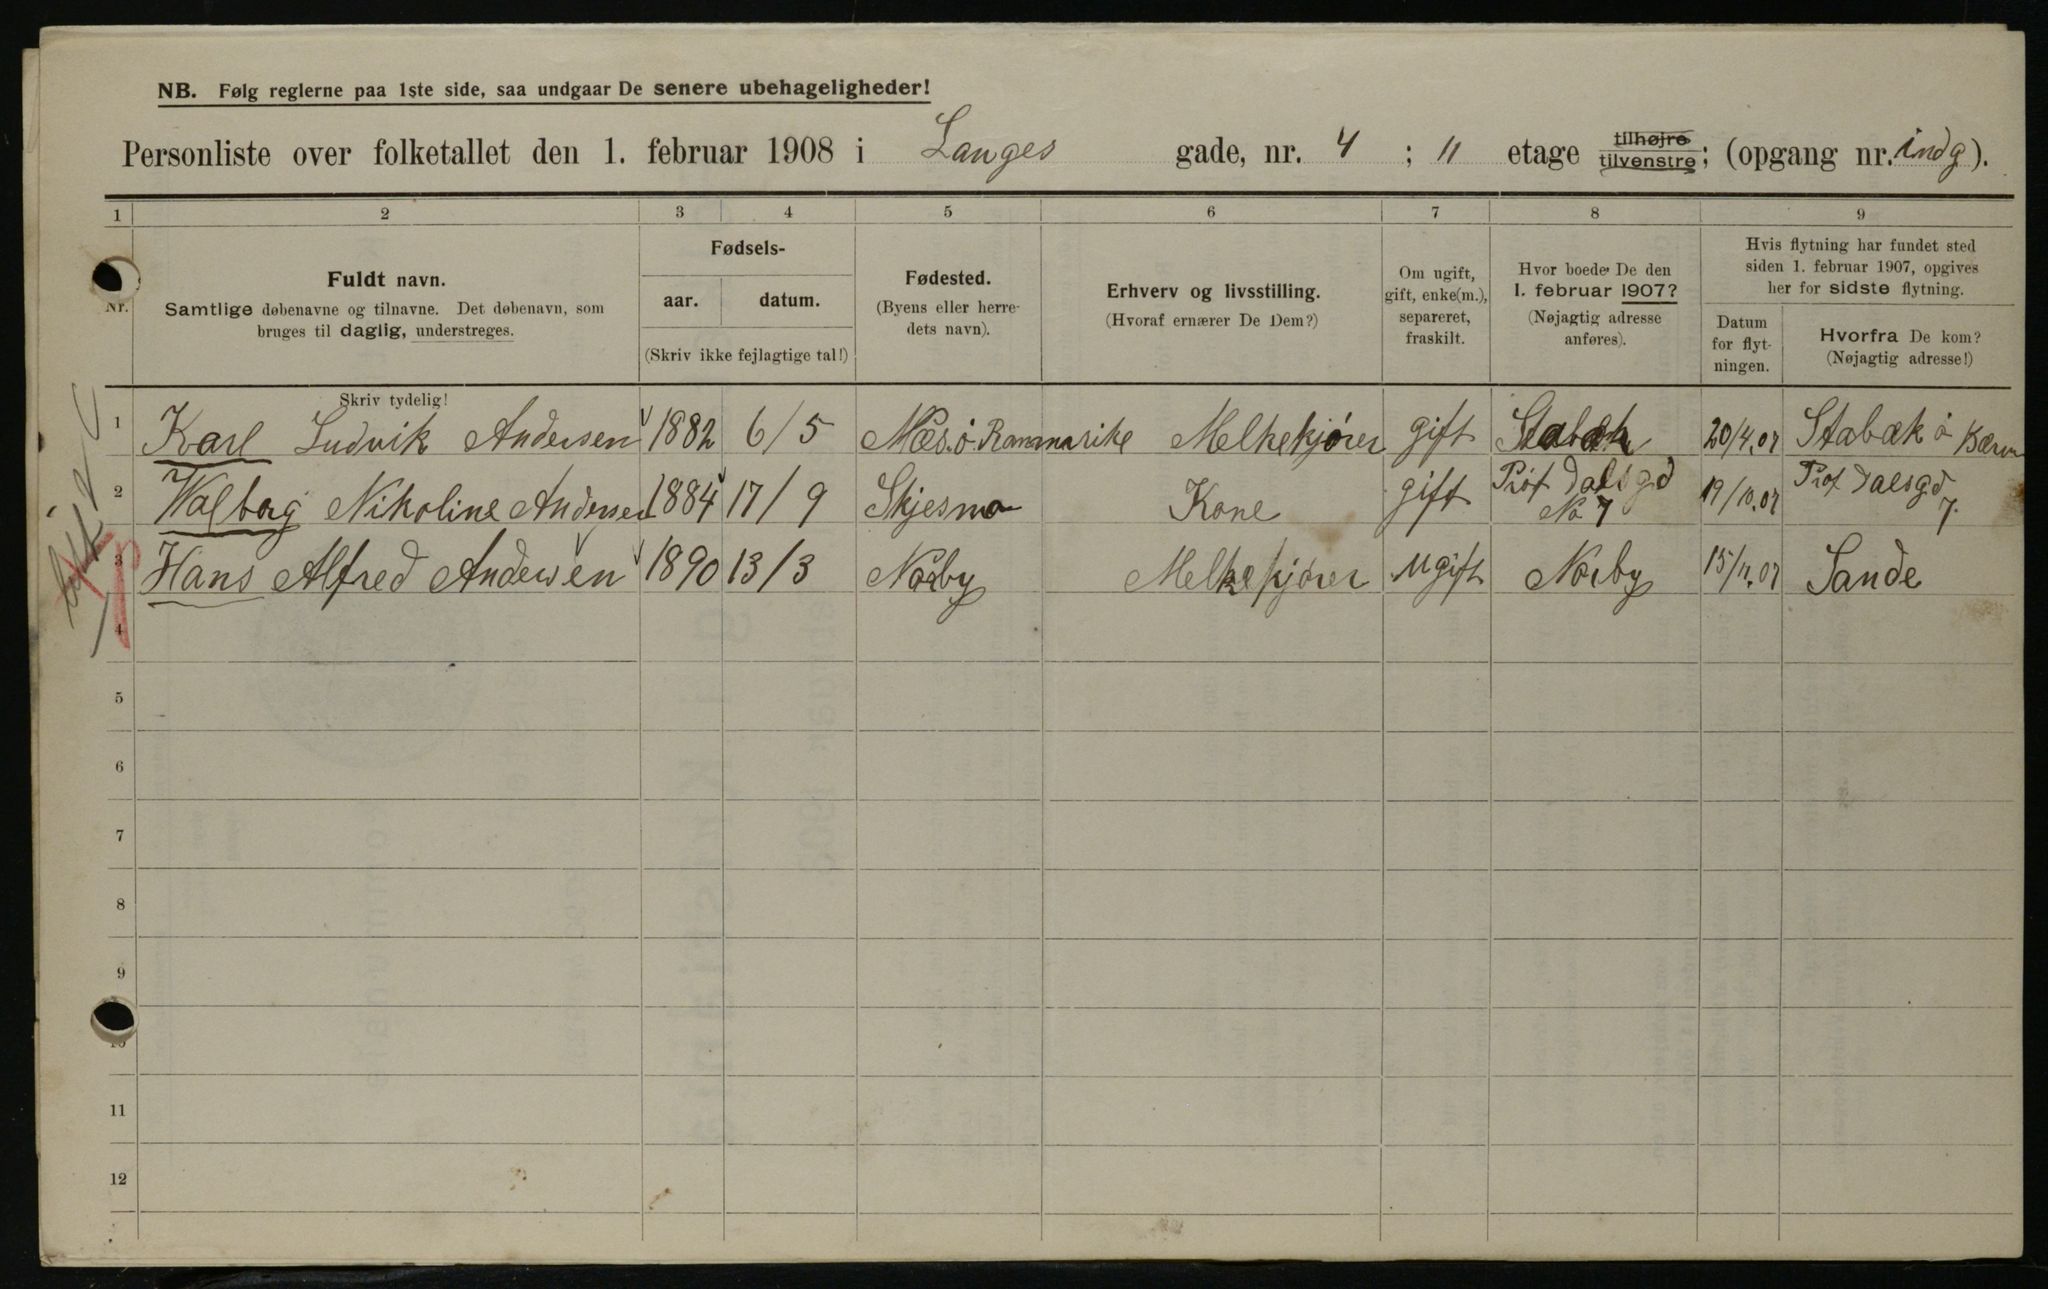 NB. Følg reglerne paa 1ste side, saa undgaar De senere ubehageligheder!
Personliste over folketallet den 1. februar 1908 i Langes gade, nr. 4 ; 11 etage tilhøjre tilvenstre; (opgang nr. indg).
1 2 3 4 5 6 7 8 9
Nr.
Fuldt navn.
Samtlige døbenavne og tilnavne. Det døbenavn, som
bruges til daglig, understreges.
Fødsels-
aar. datum.
(Skriv ikke fejlagtige tal!)
Fødested.
(Byens eller herre-
dets navn).
Erhverv og livsstilling.
(Hvoraf ernærer De Dem?)
Om ugift,
gift, enke(m.),
separeret,
fraskilt.
Hvor boede De den
1. februar 1907?
(Nøjagtig adresse
anføres).
Hvis flytning har fundet sted
siden 1. februar 1907, opgives
her for sidste flytning.
Datum
for flyt-
ningen.
Hvorfra De kom?
(Nøjagtig adresse!)
Skriv tydelig!
1 Karl Ludvik Andersen 1882 6/5 Næs. ö. Rammarike Melkekjører gift Stabæk 20/4.07 Stabæk i Bærum
2 Walborg Nikoline Andersen 1884 17/9 Skjesmo Kone gift Prof Dalsgd No 7 19/10.07 Prof Dalsgd 7.
3 Hans Alfred Andersen 1890 13/3 Nørby Melkekjører Ugift Nørby 15/11.07 Sande
4
5
6
7
8
9
10
11
12